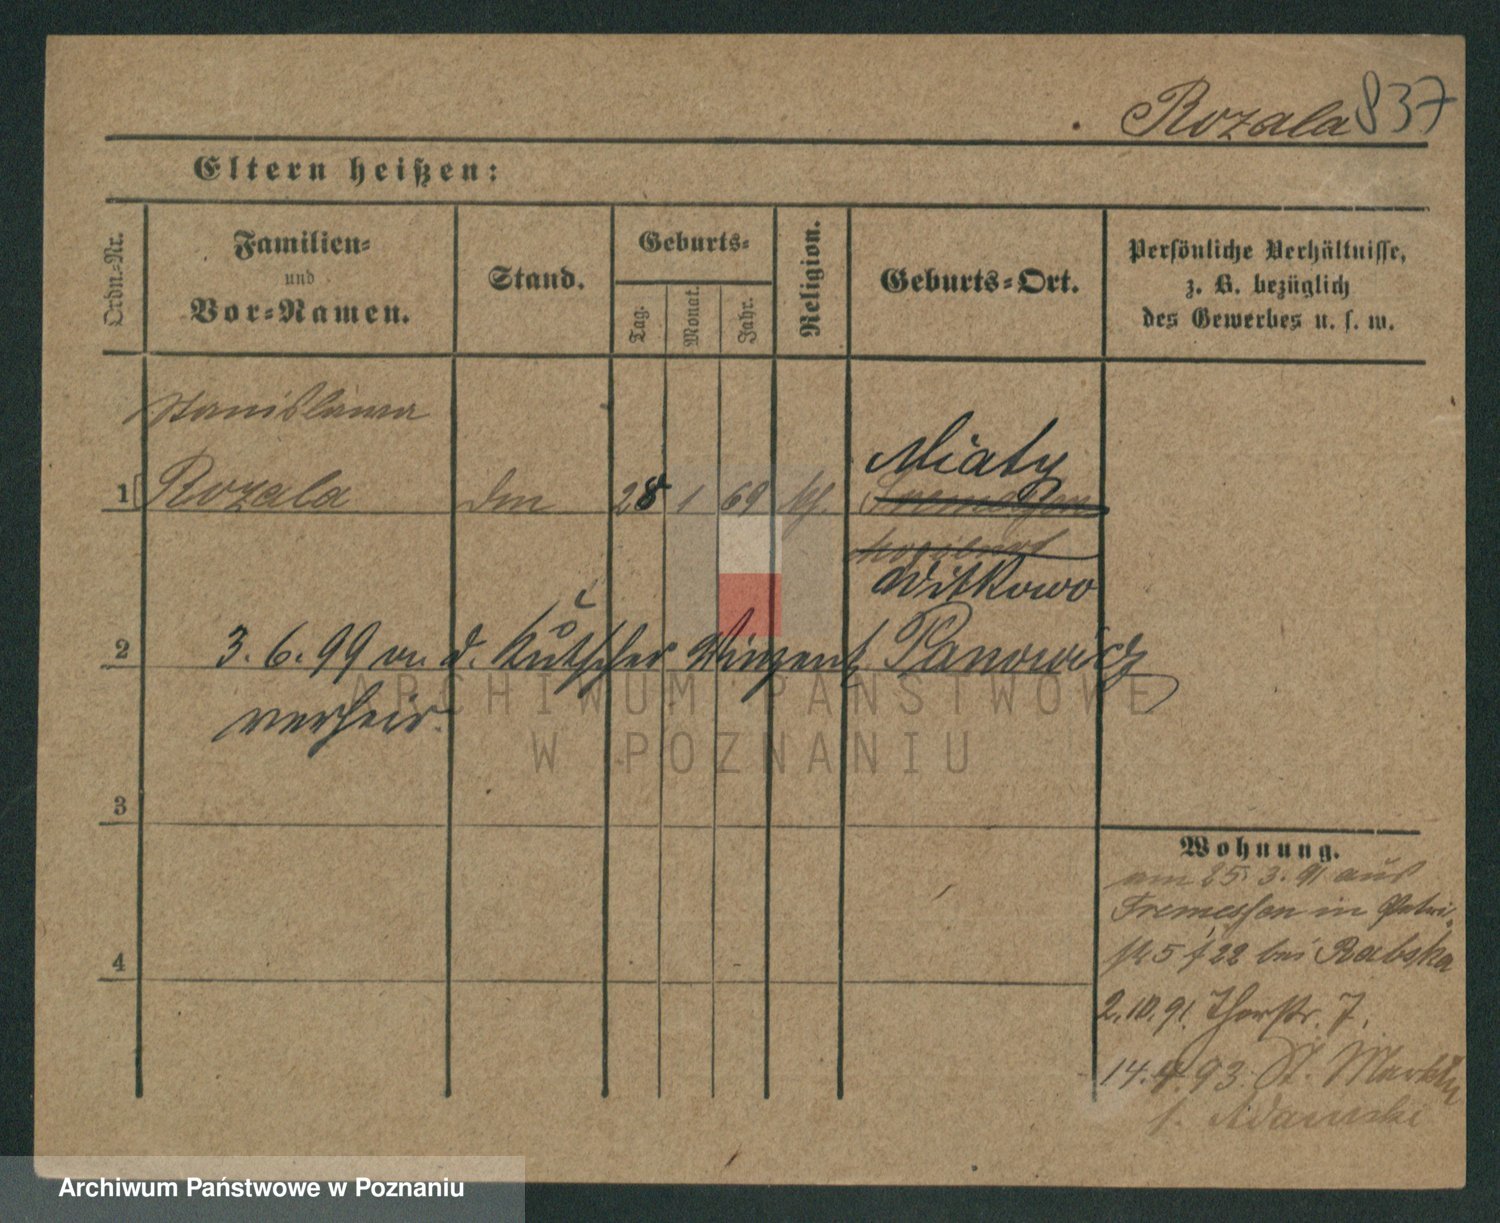 Rozala 837
Eltern heißen:
Ordn.-Nr.
Familien-
und
Vor-Namen.
Stand.
Geburts-
Tag.
Monat.
Jahr.
Religion.
Geburts-Ort.
Persönliche Verhältnisse,
z. B. bezüglich
des Gewerbes u. s. w.
Stanislawa
1 Rozala 28 1 69 Miaty
Witkowo
2 3. 6. 99 m. d. Kutscher Vinzent Panowicz
verheir.
3
Wohnung.
am 25. 3. 91 aus
Tremessen in Petri
5 f 22 bei Rabska
4
2. 10. 91. Thorstr. 7.
14. 4. 93. St. Martin
b. Adamski
ARCHIWUM PAŃSTWOWE
W POZNANIU
Archiwum Państwowe w Poznaniu